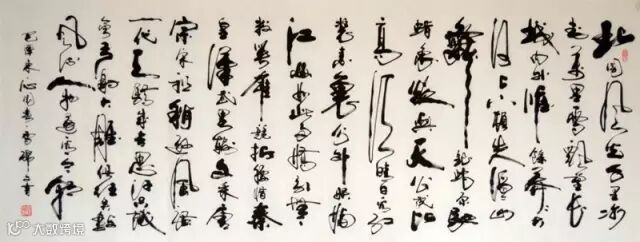 北国风光千里冰
封万里雪飘望长
城内外惟馀莽莽大
河上下顿失滔滔山
舞银蛇原驰
蜡象欲与天公试比
高须晴日看红
装素裹分外妖娆
江山如此多娇引无
数英雄竞折腰惜秦
皇汉武略输文采唐
宗宋祖稍逊风骚
一代天骄成吉思汗只识
弯弓射大雕俱往矣数
风流人物还看今朝
毛泽东沁园春雪
大数跨境